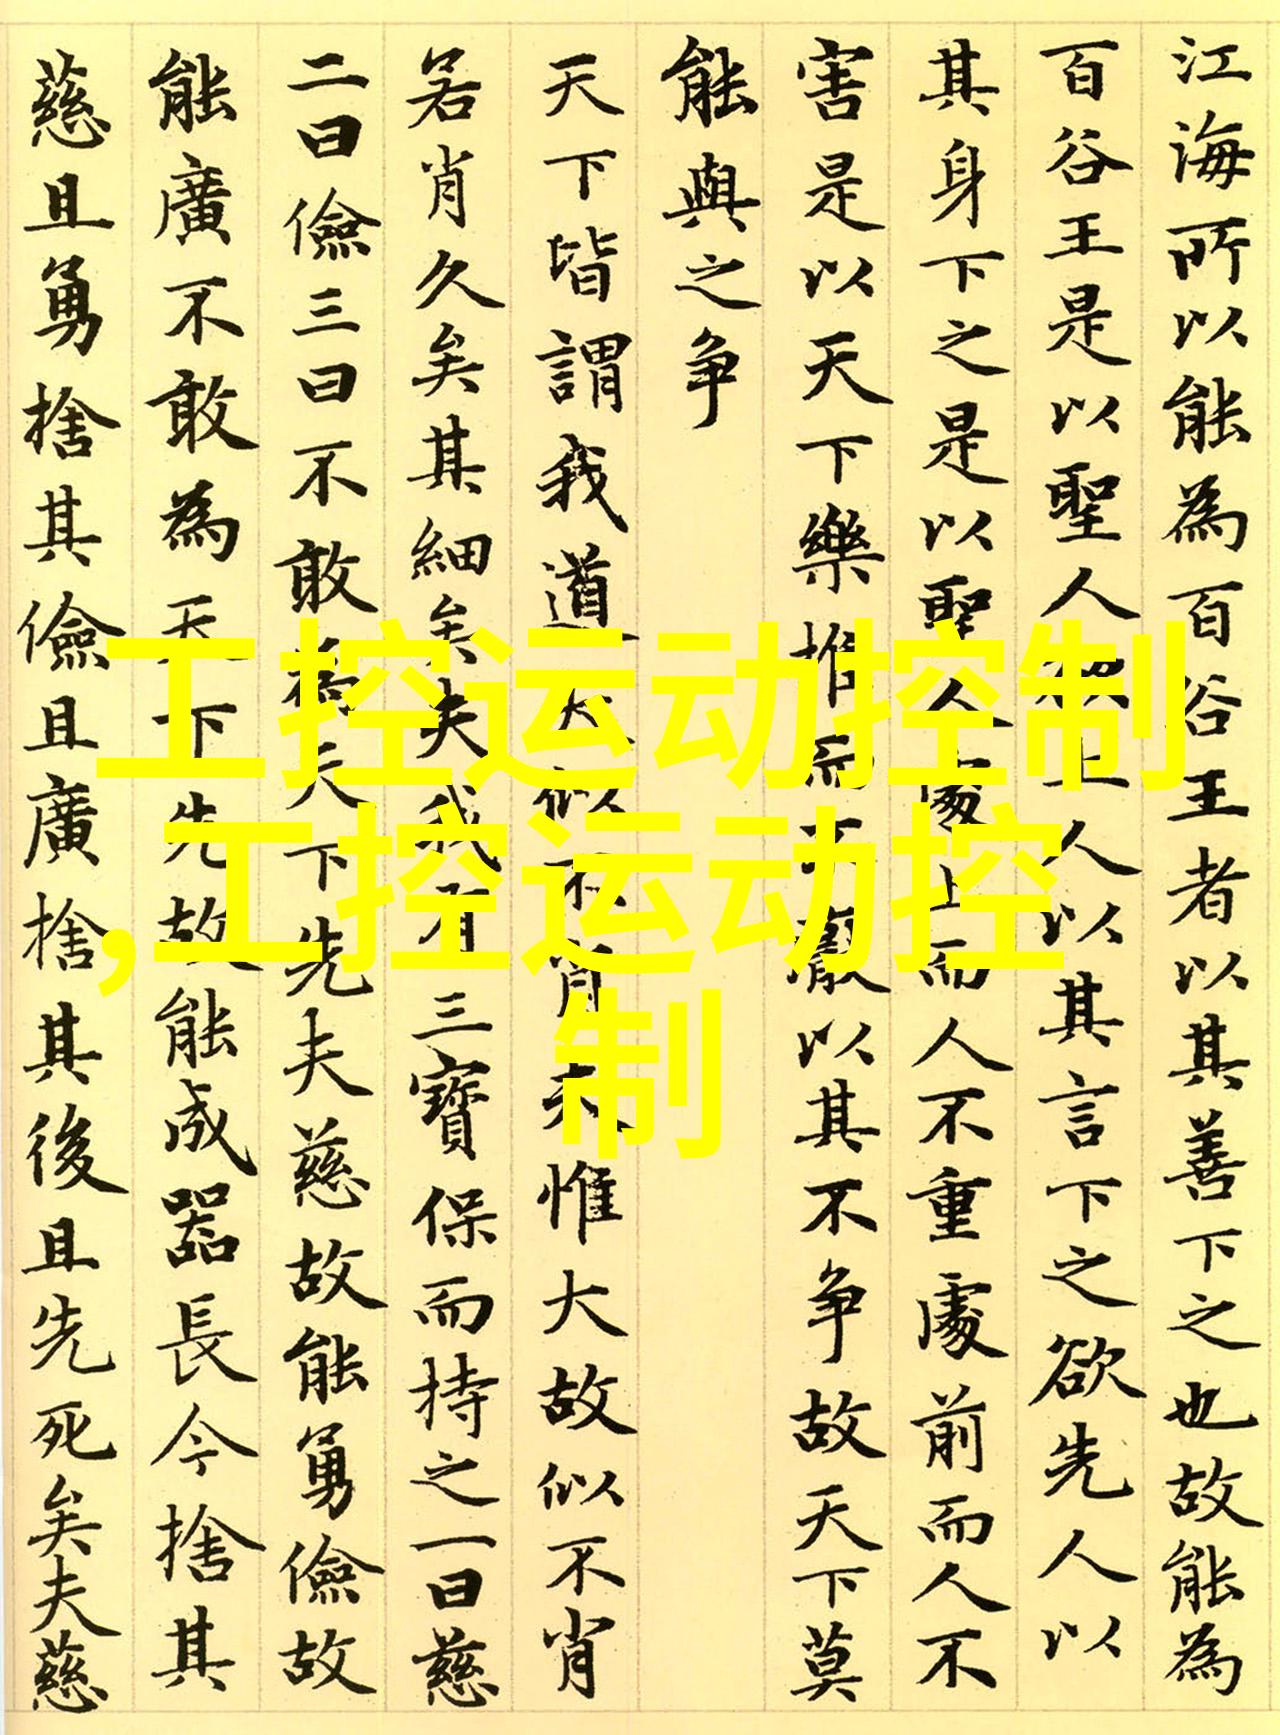 江海所以能為百谷王者以其善下之也故能為
百谷王是以聖人欲上人以其言下之欲先人以
其身下之是以聖人處上而人不重處前而人不
害是以天下樂推而不厭以其不争故天下莫
能與之争
天下皆謂我道大似不肖夫惟大故似不肖
若肖久矣其細矣夫我有三寶保而持之一曰慈
二曰儉三曰不敢為天下先夫慈故能勇儉故
能廣不敢為天下先故能成器長今捨其
慈且勇捨其儉且廣捨其後且先死矣夫慈
工控运动控制
,工控运动控
制